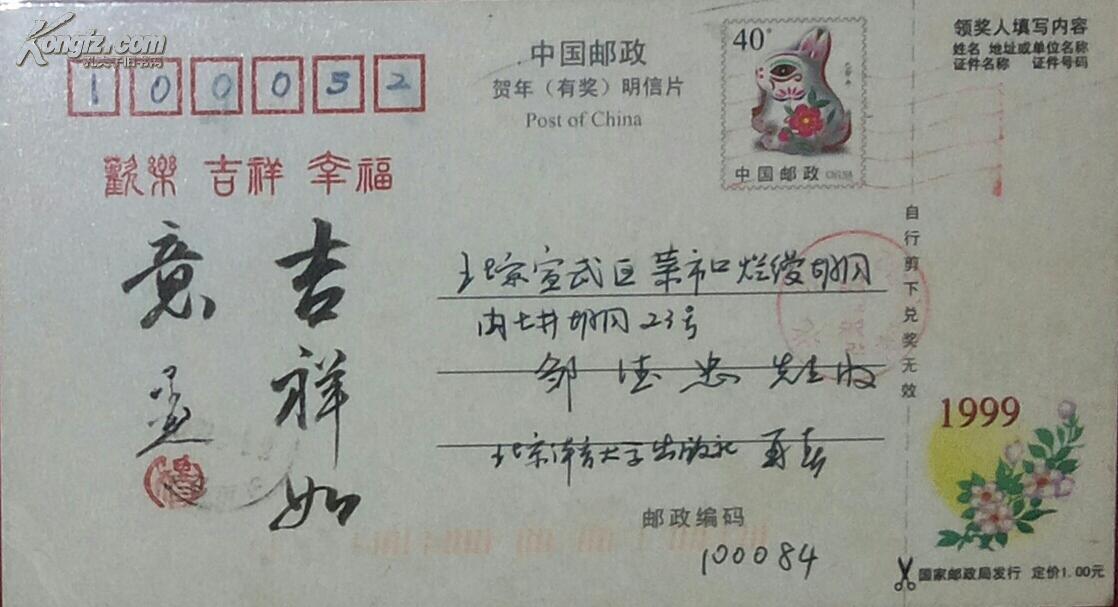 Kongfz.com
孔夫子旧书网
100032
歡樂 吉祥 幸福
吉祥如
意
中国邮政
贺年（有奖）明信片
Post of China
40
中国邮政 CHINA
领奖人填写内容
姓名 地址或单位名称
证件名称 证件号码
北京宣武区菜市口烂缦胡同
内七井胡同23号
邹德忠 先生收
北京体育大学出版社
邮政编码
100084
自行剪下兑奖无效
1999
国家邮政局发行 定价1.00元